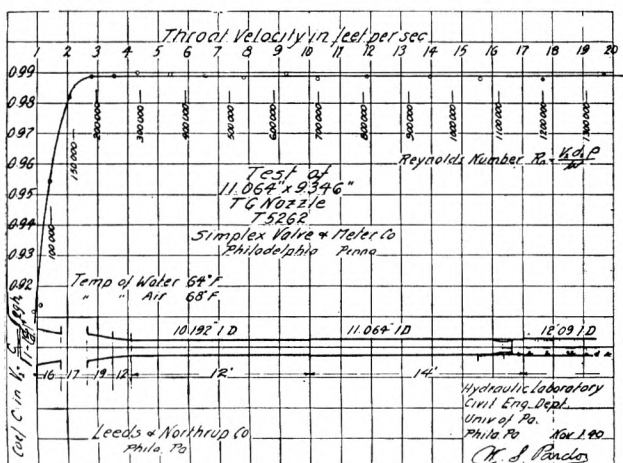 Throat Velocity in feet per sec
1 2 3 4 5 6 7 8 9 10 11 12 13 14 15 16 17 18 19 20
0.99
0.98
0.97
0.96
0.95
0.94
0.93
0.92
100000 150000 200000 300000 400000 500000 600000 700000 800000 900000 1000000 1100000 1200000 1300000
Reynolds Number
Test of
11.064" x 9.346"
TG Nozzle
T5262
Simplex Valve & Meter Co
Philadelphia Penna
Temp of Water 64°F
" " Air 68°F
Coef C in
10.192" I D 11.064" I D 12.09 I D
16 17 19 12 12' 14'
Leeds & Northrup Co
Phila. Pa
Hydraulic Laboratory
Civil Eng. Dept.
Univ of Pa.
Phila. Pa Nov 1.40
W. S. Pardoe